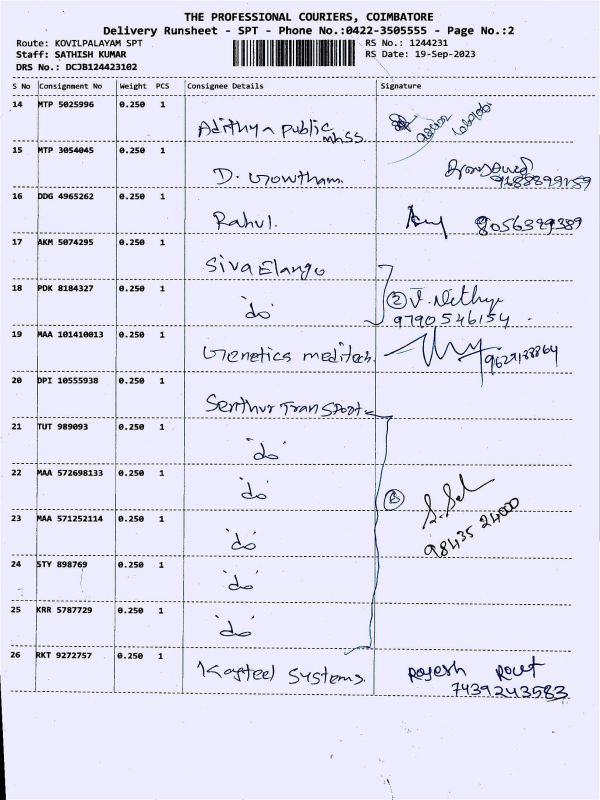 THE PROFESSIONAL COURIERS, COIMBATORE
Delivery Runsheet - SPT - Phone No.:0422-3505555 - Page No.:2
Route: KOVILPALAYAM SPT
Staff: SATHISH KUMAR
DRS No.: DCJB124423102
RS No.: 1244231
RS Date: 19-Sep-2023
S No Consignment No Weight PCS Consignee Details Signature
14 MTP 5025996 0.250 1
Adithya public mhss.
15 MTP 3054045 0.250 1
D. Gowtham
16 DDG 4965262 0.250 1
Rahul. 8056399389
17 AKM 5074295 0.250 1
Siva Elango
18 PDK 8184327 0.250 1
'do' ②
9790546154
19 MAA 101410013 0.250 1
Genetics meditech.
20 DPI 10555938 0.250 1
Senthur Transport
21 TUT 989093 0.250 1
'do'
22 MAA 572698133 0.250 1
'do' ⑥
23 MAA 571252114 0.250 1
'do' 98435 24000
24 STY 898769 0.250 1
'do'
25 KRR 5787729 0.250 1
'do'
26 RKT 9272757 0.250 1
Kasteel Systems Rajesh Rout
7439243583